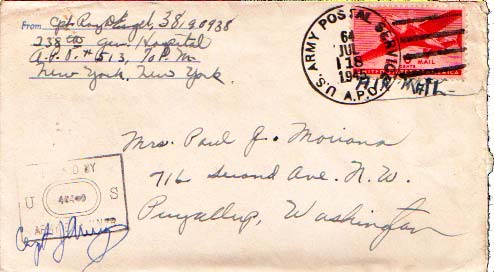 From
Cpl. Roy 38190938
238th Gen. Hospital
A.P.O. # 513, % P.M.
New York, New York.
U.S. ARMY POSTAL SERVICE A.P.O.
64
JUL
18
AIR MAIL
MAIL
CENTS
Mrs. Paul J. Moriana
716 Second Ave. N.W.
Puyallup, Washington
BY
U S
ARMY
Capt